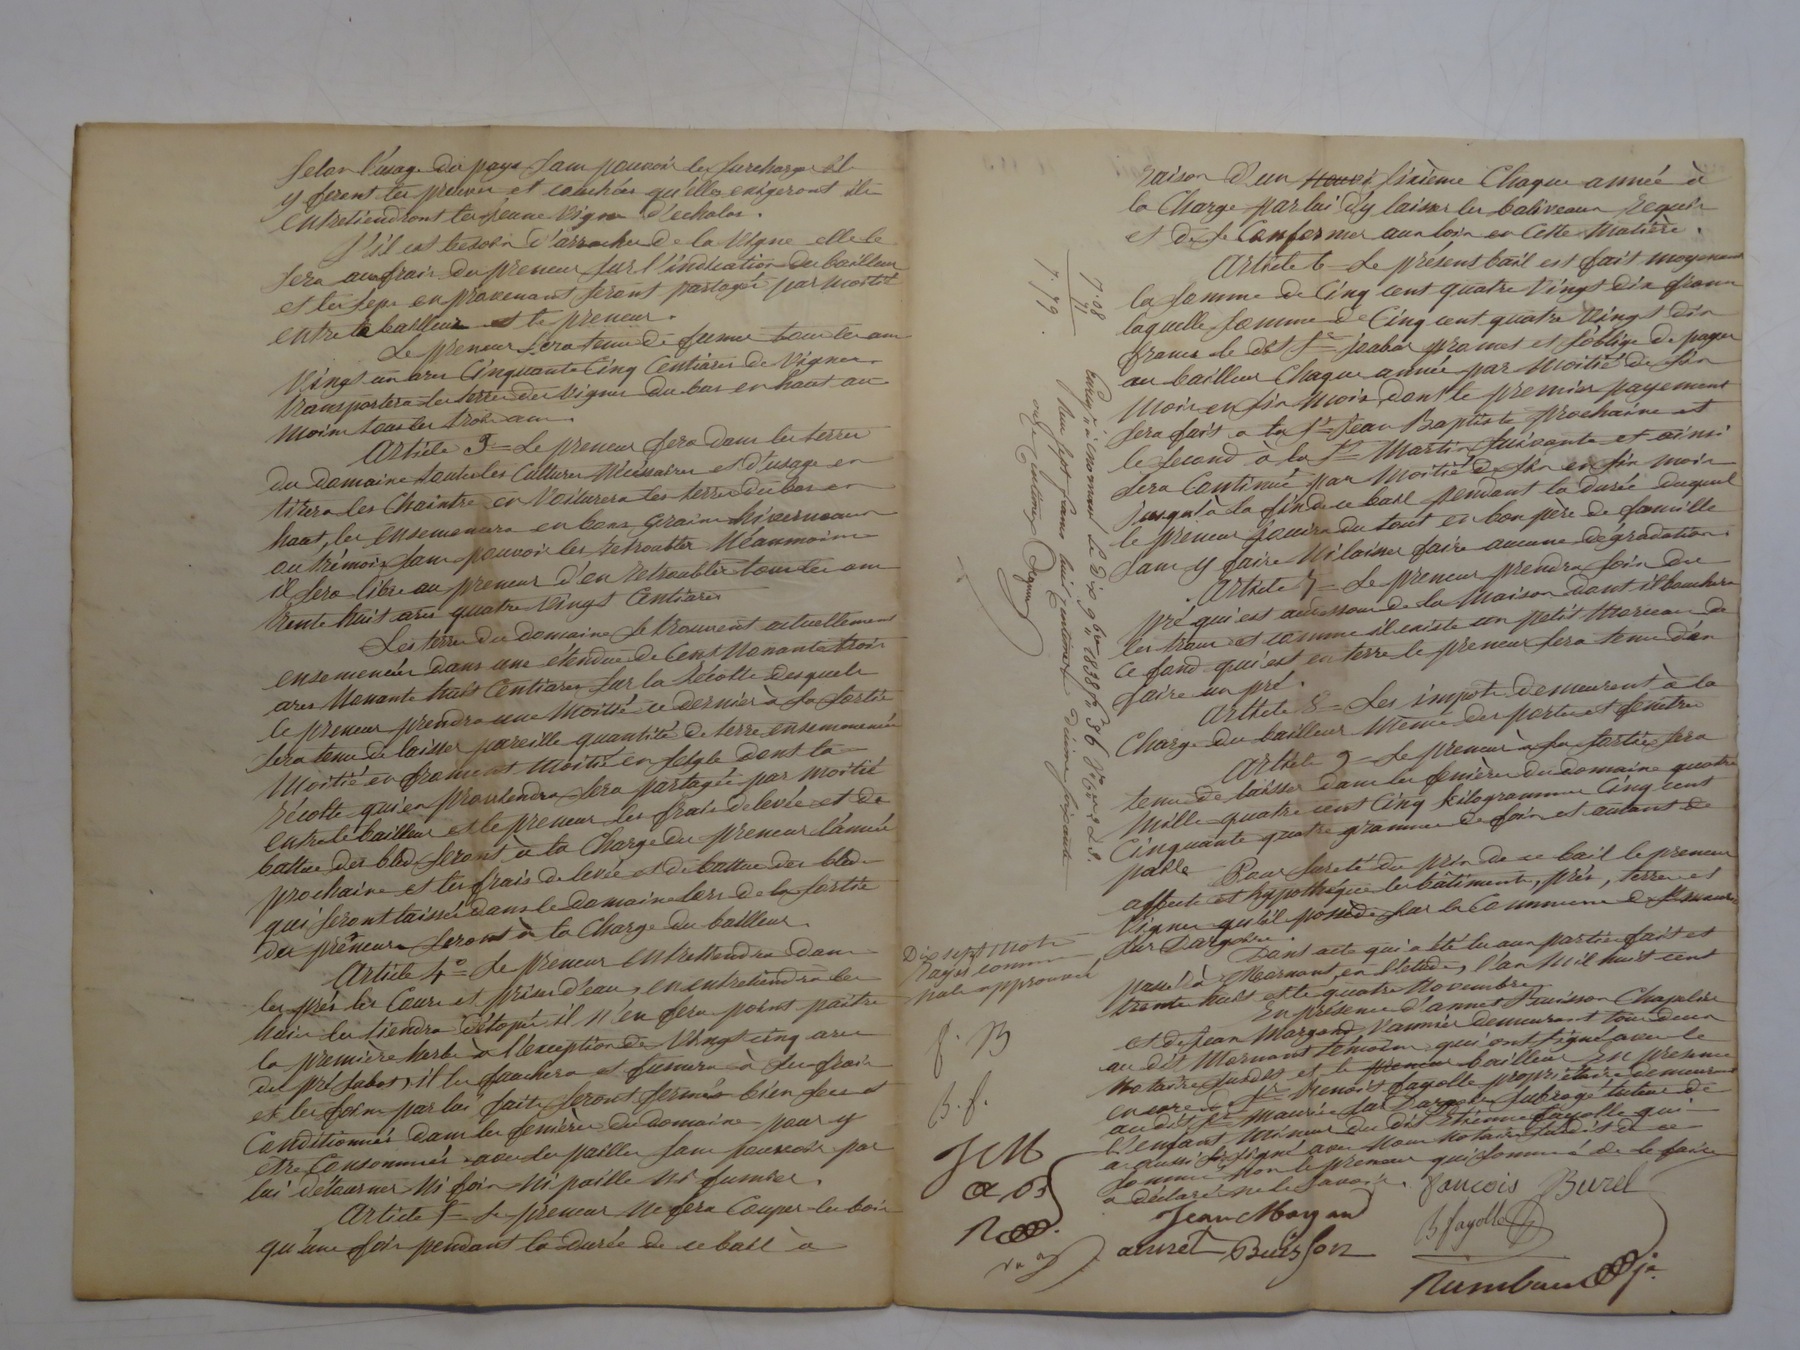 selon l'usage du pays sans pouvoir les surcharger il
y feront les preuves et couchées qu'elles exigeront ils
entretiendront les jeune vignes d'echalas.
S'il est besoin d'arracher de la vigne elle le
sera aux frais du preneur sur l'indication du bailleur
et les seps en provenant seront partagés par moitié
entre le bailleur et le preneur.
Le preneur sera tenu de fumer tous les ans
Vingt un ares Cinquante Cinq Centiares de Vignes
transportera les terres des vignes du bas en haut au
moins tous les trois ans.
Article 3= Le preneur fera dans les terres
du domaine toutes les Cultures Nécessaires et d'usage en
titrera les Chaintres en Voiturera les terres du bas en
haut, les ensemencera en bons grains hivernaux
ou trémois sans pouvoir les retroubler Néanmoins
il sera libre au preneur d'en retroubler tous les ans
trente huit ares quatre vingt Centiares
Les terres du domaine se trouvent actuellement
ensemencées dans une étendue de Cent Nonante trois
ares Nonante huit Centiares sur la Récolte desquels
le preneur prendra une Moitié ce dernier à sa sortie
sera tenu de laisser pareille quantité de terre ensemmencée
Moitié en froment Moitié en seigle dont la
récolte qui en proviendra sera partagée par moitié
entre le bailleur et le preneur les frais de levée et de
battue des bleds seront à la Charge du preneur l'année
prochaine et les frais de levée et de battue des bleds
qui seront laissés dans le domaine lors de la sortie
du preneur seront à la Charge du bailleur.
Article 4°= Le preneur entretiendra dans
les prés les Cours et prises d'eau, en entretiendra les
haies les tiendra détopés, il n'en fera point paitre
la première herbe à l'exception de Vingt cinq ares
du pré Sabot, il les fauchera et fumera à ses frais
et les foins par lui faits seront fermés bien secs et
Conditionnés dans les fenières du domaine pour y
etre Consommés avec les pailles sans pouvoir par
lui détourner Ni foin Ni paille Ni fumier.
Article 5= Le preneur Ne fera Couper les bois
qu'une fois pendant la durée de ce bail à
raison d'un sixième Chaque année à
la Charge par lui d'y laisser les baliveaux requis
et de se Conformer aux lois en Cette Matière.
Article 6= Le présent bail est fait moyennant
la somme de Cinq cent quatre Vingt dix francs
laquelle somme de Cinq cent quatre Vingt dix
francs le dit Sr promet et s'oblige de payer
au bailleur Chaque année par Moitié de six
Mois en six Mois dont le premier payement
sera fait à la St Jean Baptiste prochaine et
le second à la St= Martin suivante et ainsi
sera Continué par Moitié de six en six mois
jusqu'à la fin de ce bail pendant la durée duquel
le preneur jouira du tout en bon père de famille
sans y faire Ni laisser faire aucune dégradation.
Article 7= Le preneur prendra soin du
pré qui est au dessous de la Maison dont il bouchera
les trous et comme il existe un petit Morceau de
ce fond qui est en terre le preneur sera tenu d'en
faire un pré.
Article 8= Les impots demeurent à la
Charge du bailleur Même des portes et fenêtres
Article 9= Le preneur à sa sortie sera
tenu de laisser dans les fenières du domaine quatre
Mille quatre cent Cinq kilogrammes Cinq cent
Cinquante quatre grammes de foin et autant de
paille Pour sureté du prix de ce bail le preneur
affecte et hypothéque les bâtiments, prés, terres et
Vignes qu'il possède sur la Commune de St Maurice
sur Dargoire.
Dont acte qui a été lu aux parties fait et
passé à Mornant, en l'etude, l'an Mil huit cent
trente huit et le quatre Novembre
En présence d'annet Buisson Chapelier
et de Jean Margand, Vannier demeurant tous deux
au dit Mornant témoins qui ont signé avec le
Notaire susdit et le preneur bailleur En presence
encore du Sr Benoit fayolle propriétaire demeurant
au dit St Maurice sur Dargoire subrogé tuteur de
l'enfant Mineur du dit Etienne fayolle qui
a aussi signé avec Nous Notaire susdit de ce
sommé Non le preneur qui sommé de le faire
a déclaré ne le savoir.
françois Burel
Jean Margand
B fayolle
annet Buisson
7.08
71
7.79.
Enregé à Mornant le Dix 9bre 1838 fo 36 Vo Cses 2 & S.
Reçu sept francs huit centimes dixième soixante
onze Centimes
Dix sept Mots
Rayés comme
nuls approuvés
f. B
B. f.
J M
a B